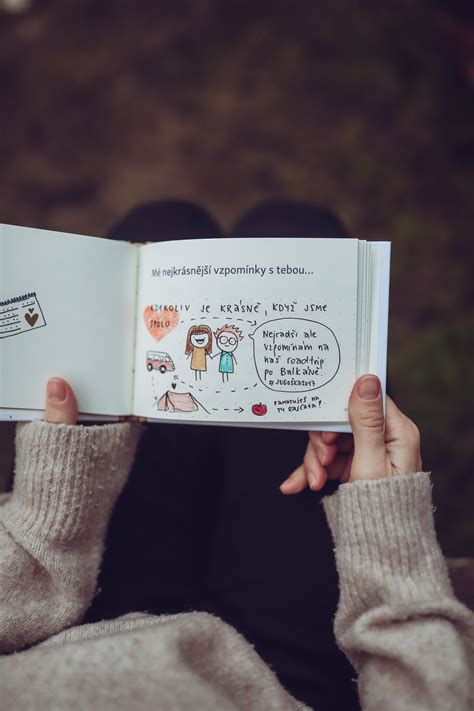 Mé nejkrásnější vzpomínky s tebou...
KDEKOLIV JE KRÁSNĚ, KDYŽ JSME
SPOLU
Nejradši ale
vzpomínám na
náš roadtrip
po Balkáně
#JUGOŠKA2017
PAMATUJEŠ NA
TY RAJČATA?